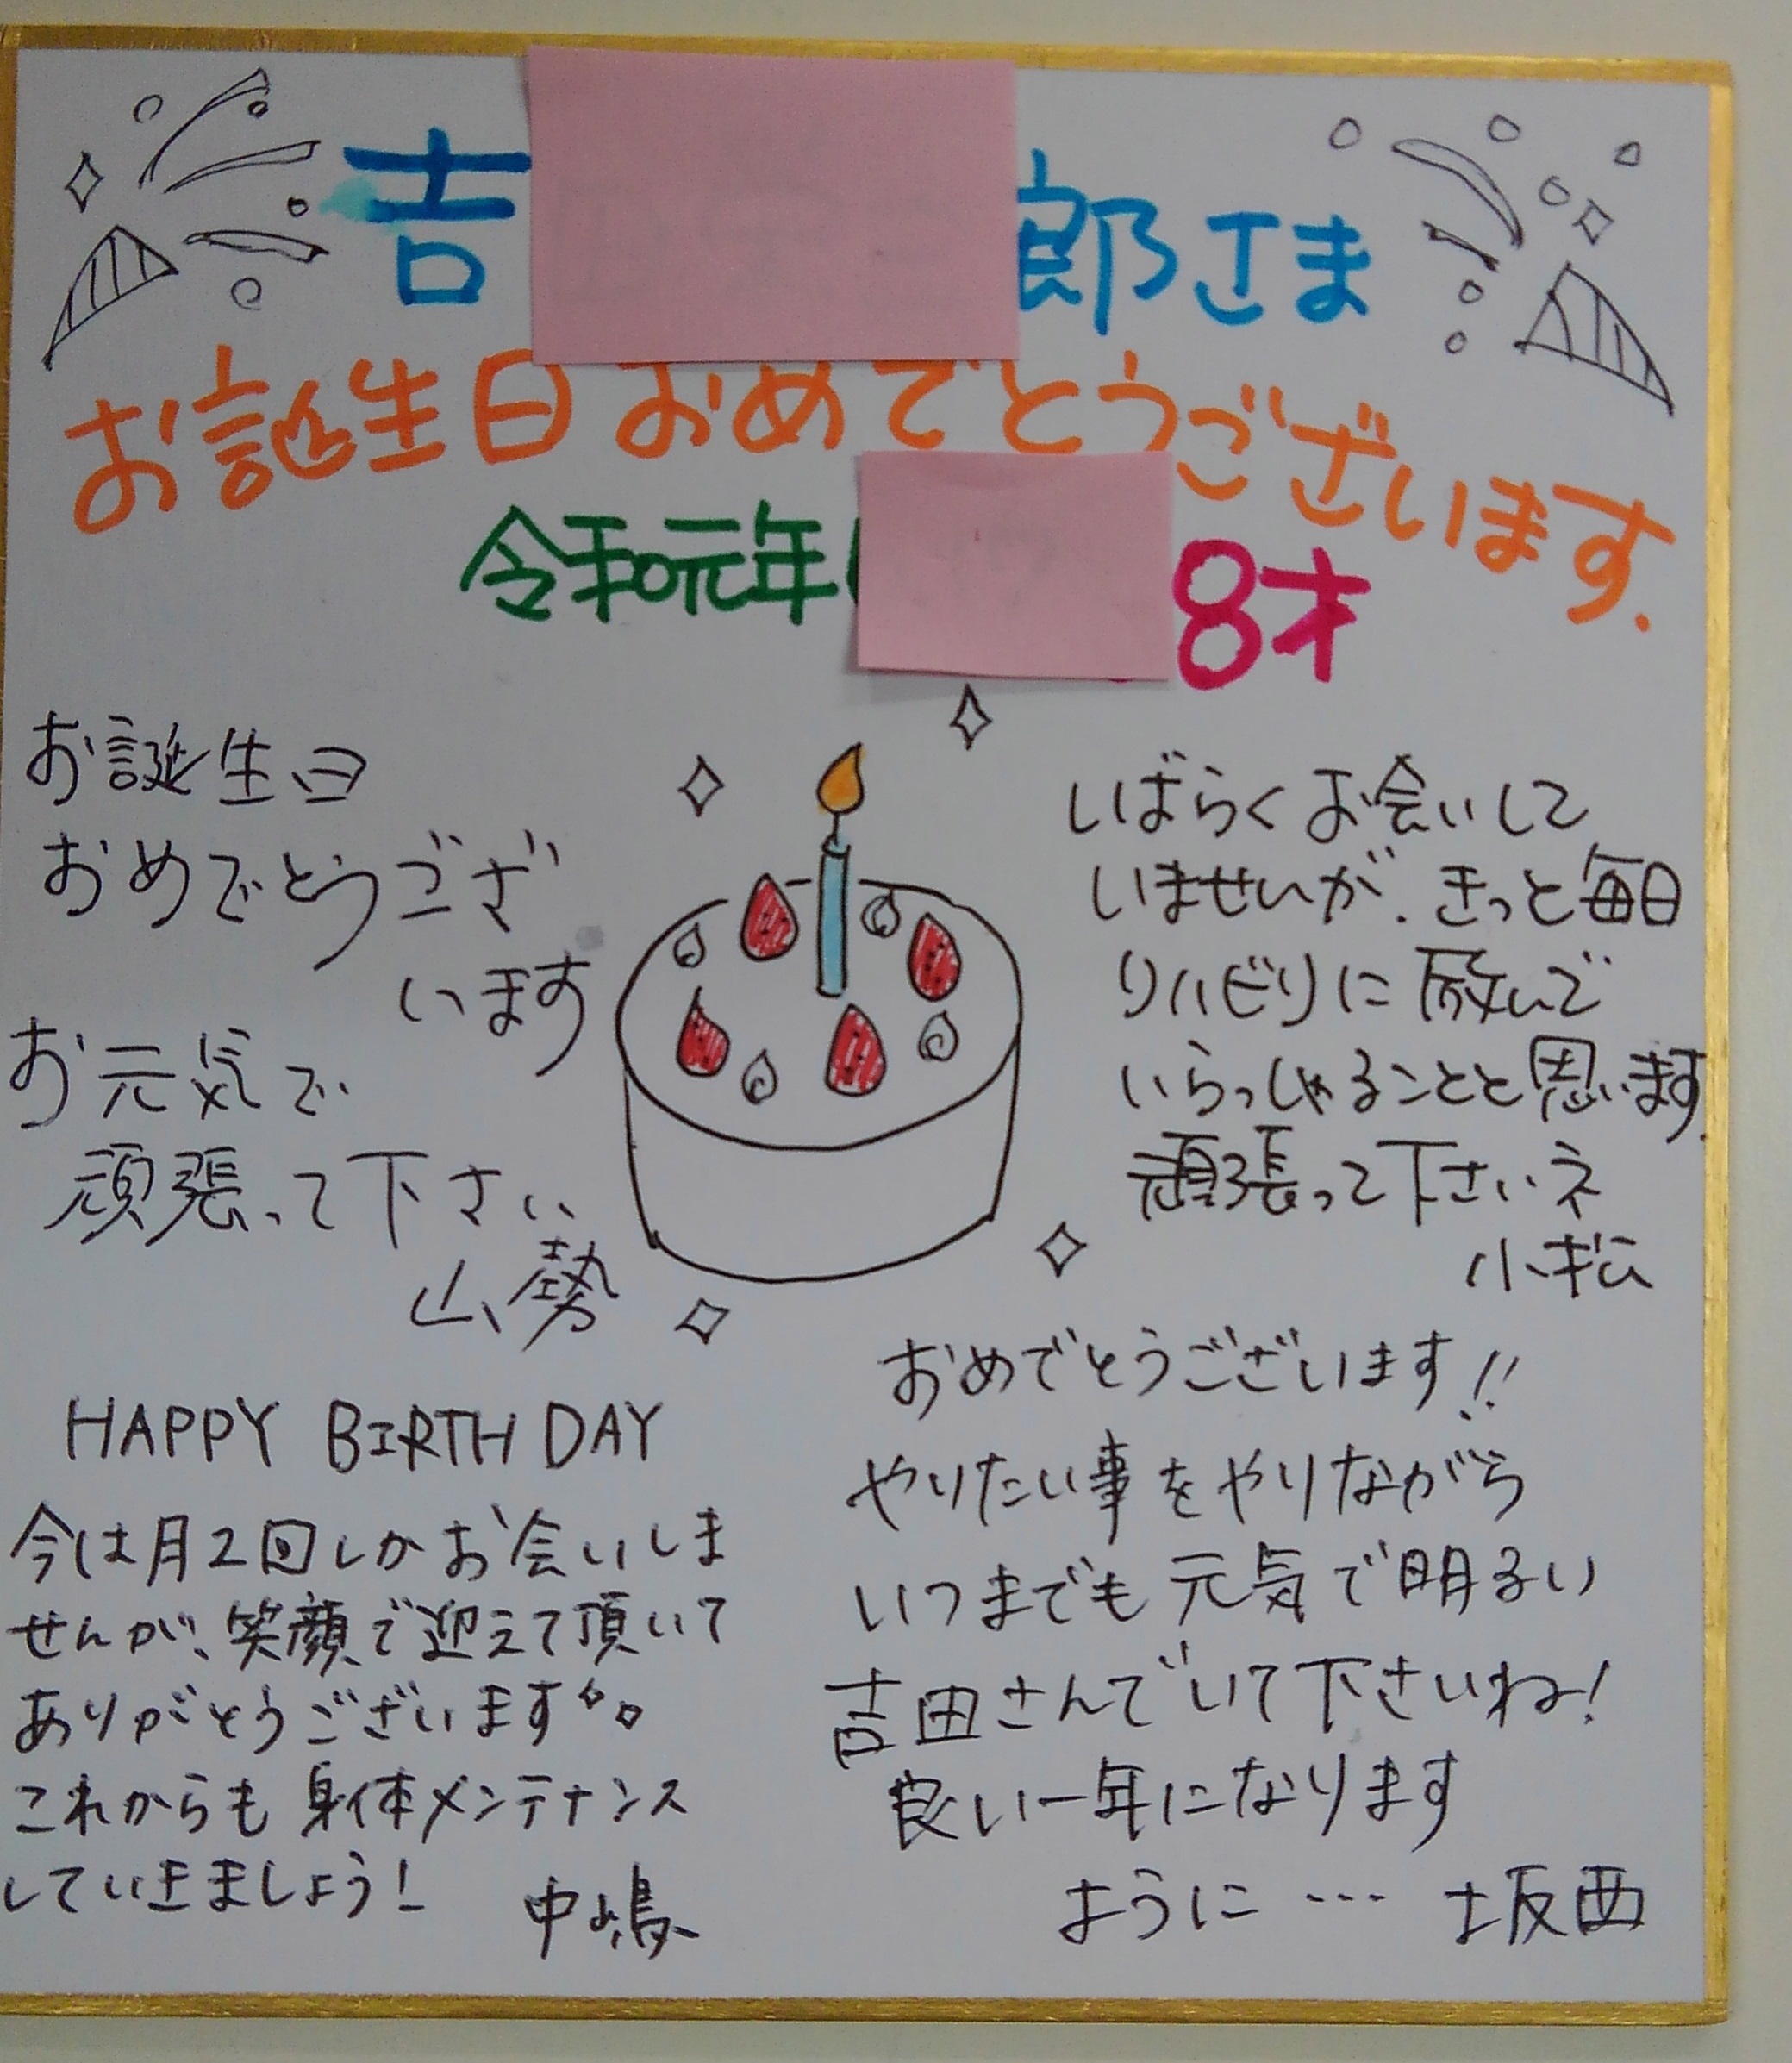 吉 郎さま
お誕生日おめでとうございます.
令和元年 8才
お誕生日
おめでとうござ
います
お元気で
頑張って下さい
山勢
しばらくお会いして
いませんが、きっと毎日
リハビリに励んで
いらっしゃることと思います.
頑張って下さいネ
小松
HAPPY BIRTHDAY
今は月2回しかお会いしま
せんが、笑顔で迎えて頂いて
ありがとうございます
これからも身体メンテナンス
していきましょう!
中嶋
おめでとうございます!!
やりたい事をやりながら
いつまでも元気で明るい
吉田さんでいて下さいね!
良い一年になります
ように… 坂西